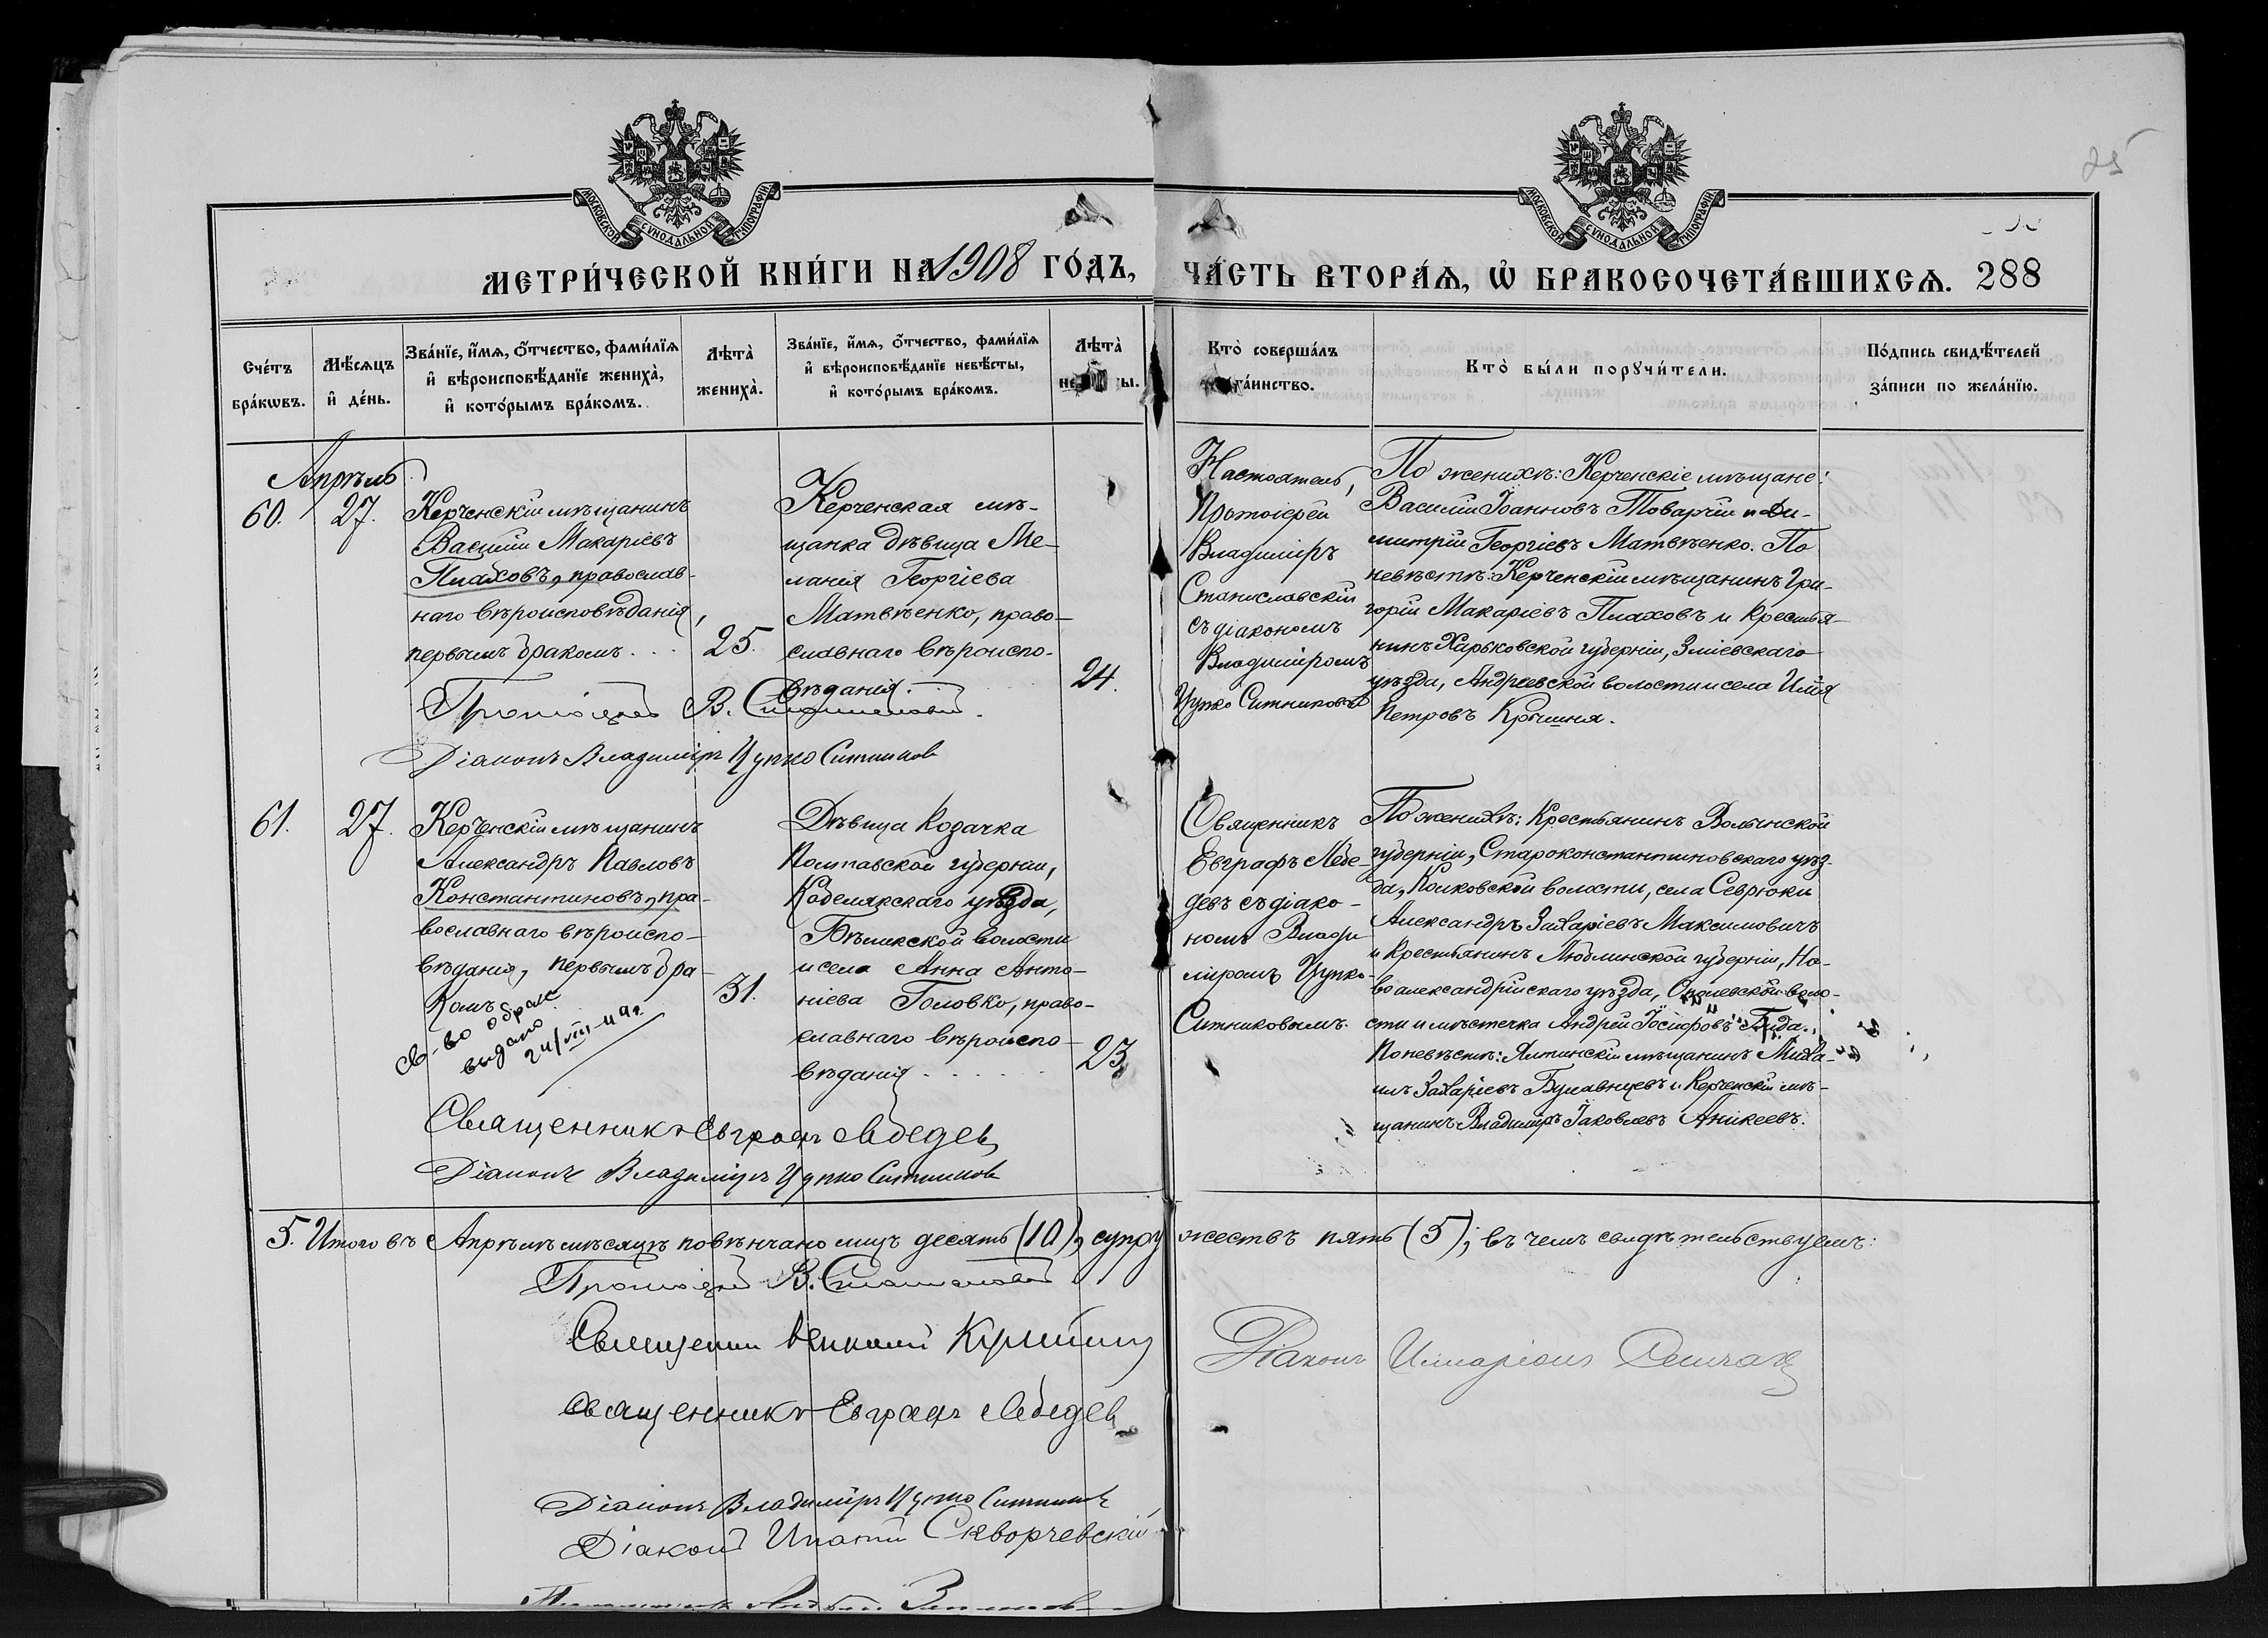 25
МОСКОВСКОЙ СѴНОДАЛЬНОЙ ТИПОГРАФІИ
МОСКОВСКОЙ СѴНОДАЛЬНОЙ ТИПОГРАФІИ
МЕТРИ́ЧЕСКОЙ КНИ́ГИ НА 1908 ГО́ДЪ,
ЧА́СТЬ ВТОРА́Ѧ, Ѡ҆ БРАКОСОЧЕТА́ВШИХСѦ. 288
Сче́тъ
бра́кѡвъ.
Мѣ́сѧцъ
и҆ де́нь.
Зва́нїе, и҆́мѧ, ѻ҆́тчество, фами́лїѧ
и҆ вѣроисповѣ́данїе жениха̀,
и҆ кото́рымъ бра́комъ.
Лѣта̀
жениха̀.
Зва́нїе, и҆́мѧ, ѻ҆́тчество, фами́лїѧ
и҆ вѣроисповѣ́данїе невѣ́сты,
и҆ кото́рымъ бра́комъ.
Лѣта̀
Кто̀ соверша́лъ
та́инство.
Кто̀ бы́ли порꙋчи́тели.
По́дпись свидѣ́телей
за́писи по жела́нїю.
Апрѣль
60.
27.
Керченскій мѣщанинъ
Василій Макаріевъ
Плаховъ, православ-
наго вѣроисповѣданія,
первымъ бракомъ...
25.
Керченская мѣ-
щанка дѣвица Ме-
ланія Георгіева
Матвѣенко, право-
славнаго вѣроиспо-
вѣданія.
24.
Настоятель,
Протоіерей
Владиміръ
Станиславскій
съ діакономъ
Владиміромъ
Цупко Ситниковымъ
По женихѣ: Керченскіе мѣщане:
Василій Іоанновъ Товарчій и Ди-
митрій Георгіевъ Матвѣенко. По
невѣстѣ: Керченскій мѣщанинъ Гри-
горій Макаріевъ Плаховъ и крестья-
нинъ Харьковской губерніи, Зміевскаго
уѣзда, Андреевской волости и села Илія
Петровъ
Протоіерей В. Станиславскій.
Діаконъ Владиміръ Цупко Ситниковъ
61.
27.
Керченскій мѣщанинъ
Александръ Павловъ
Константиновъ, пра-
вославнаго вѣроиспо-
вѣданія, первымъ бра-
комъ
св-во о браке
выдано
24/VIII-49г.
31.
Дѣвица козачка
Полтавской губерніи,
Кобелякскаго уѣзда,
Бѣликской волости
и села Анна Анто-
ніева Головко, право-
славнаго вѣроиспо-
вѣданія......
23
Священникъ
Евграфъ Лебе-
девъ съ діако-
номъ Влади
міромъ Цупко-
Ситниковымъ.
По женихѣ: крестьянинъ Волынской
губерніи, Староконстантиновскаго уѣз-
да, волости, села Севрюки
Александръ Захаріевъ Максимовичъ
и крестьянинъ Люблинской губерніи, Но-
во александрійскаго уѣзда, Ополевской воло-
сти и мѣстечка Андрей Іосифовъ
По невѣстѣ: Ялтинскій мѣщанинъ Миха-
илъ Захаріевъ Булавинцевъ и Керченскій мѣ-
щанинъ Владиміръ Іаковлевъ Аникеевъ.
Священникъ Евграфъ Лебедевъ
Діаконъ Владиміръ Цупко Ситниковъ
5. Итого въ Апрѣлѣ мѣсяцѣ повѣнчано лицъ десять (10), супружествъ пять (5); въ чемъ свидѣтельствуемъ:
Протоіерей В. Станиславскій
Священникъ
Діаконъ Иларіонъ
Священникъ Евграфъ Лебедевъ
Діаконъ Владиміръ Цупко Ситниковъ
Діаконъ Ипатій Скворчевскій